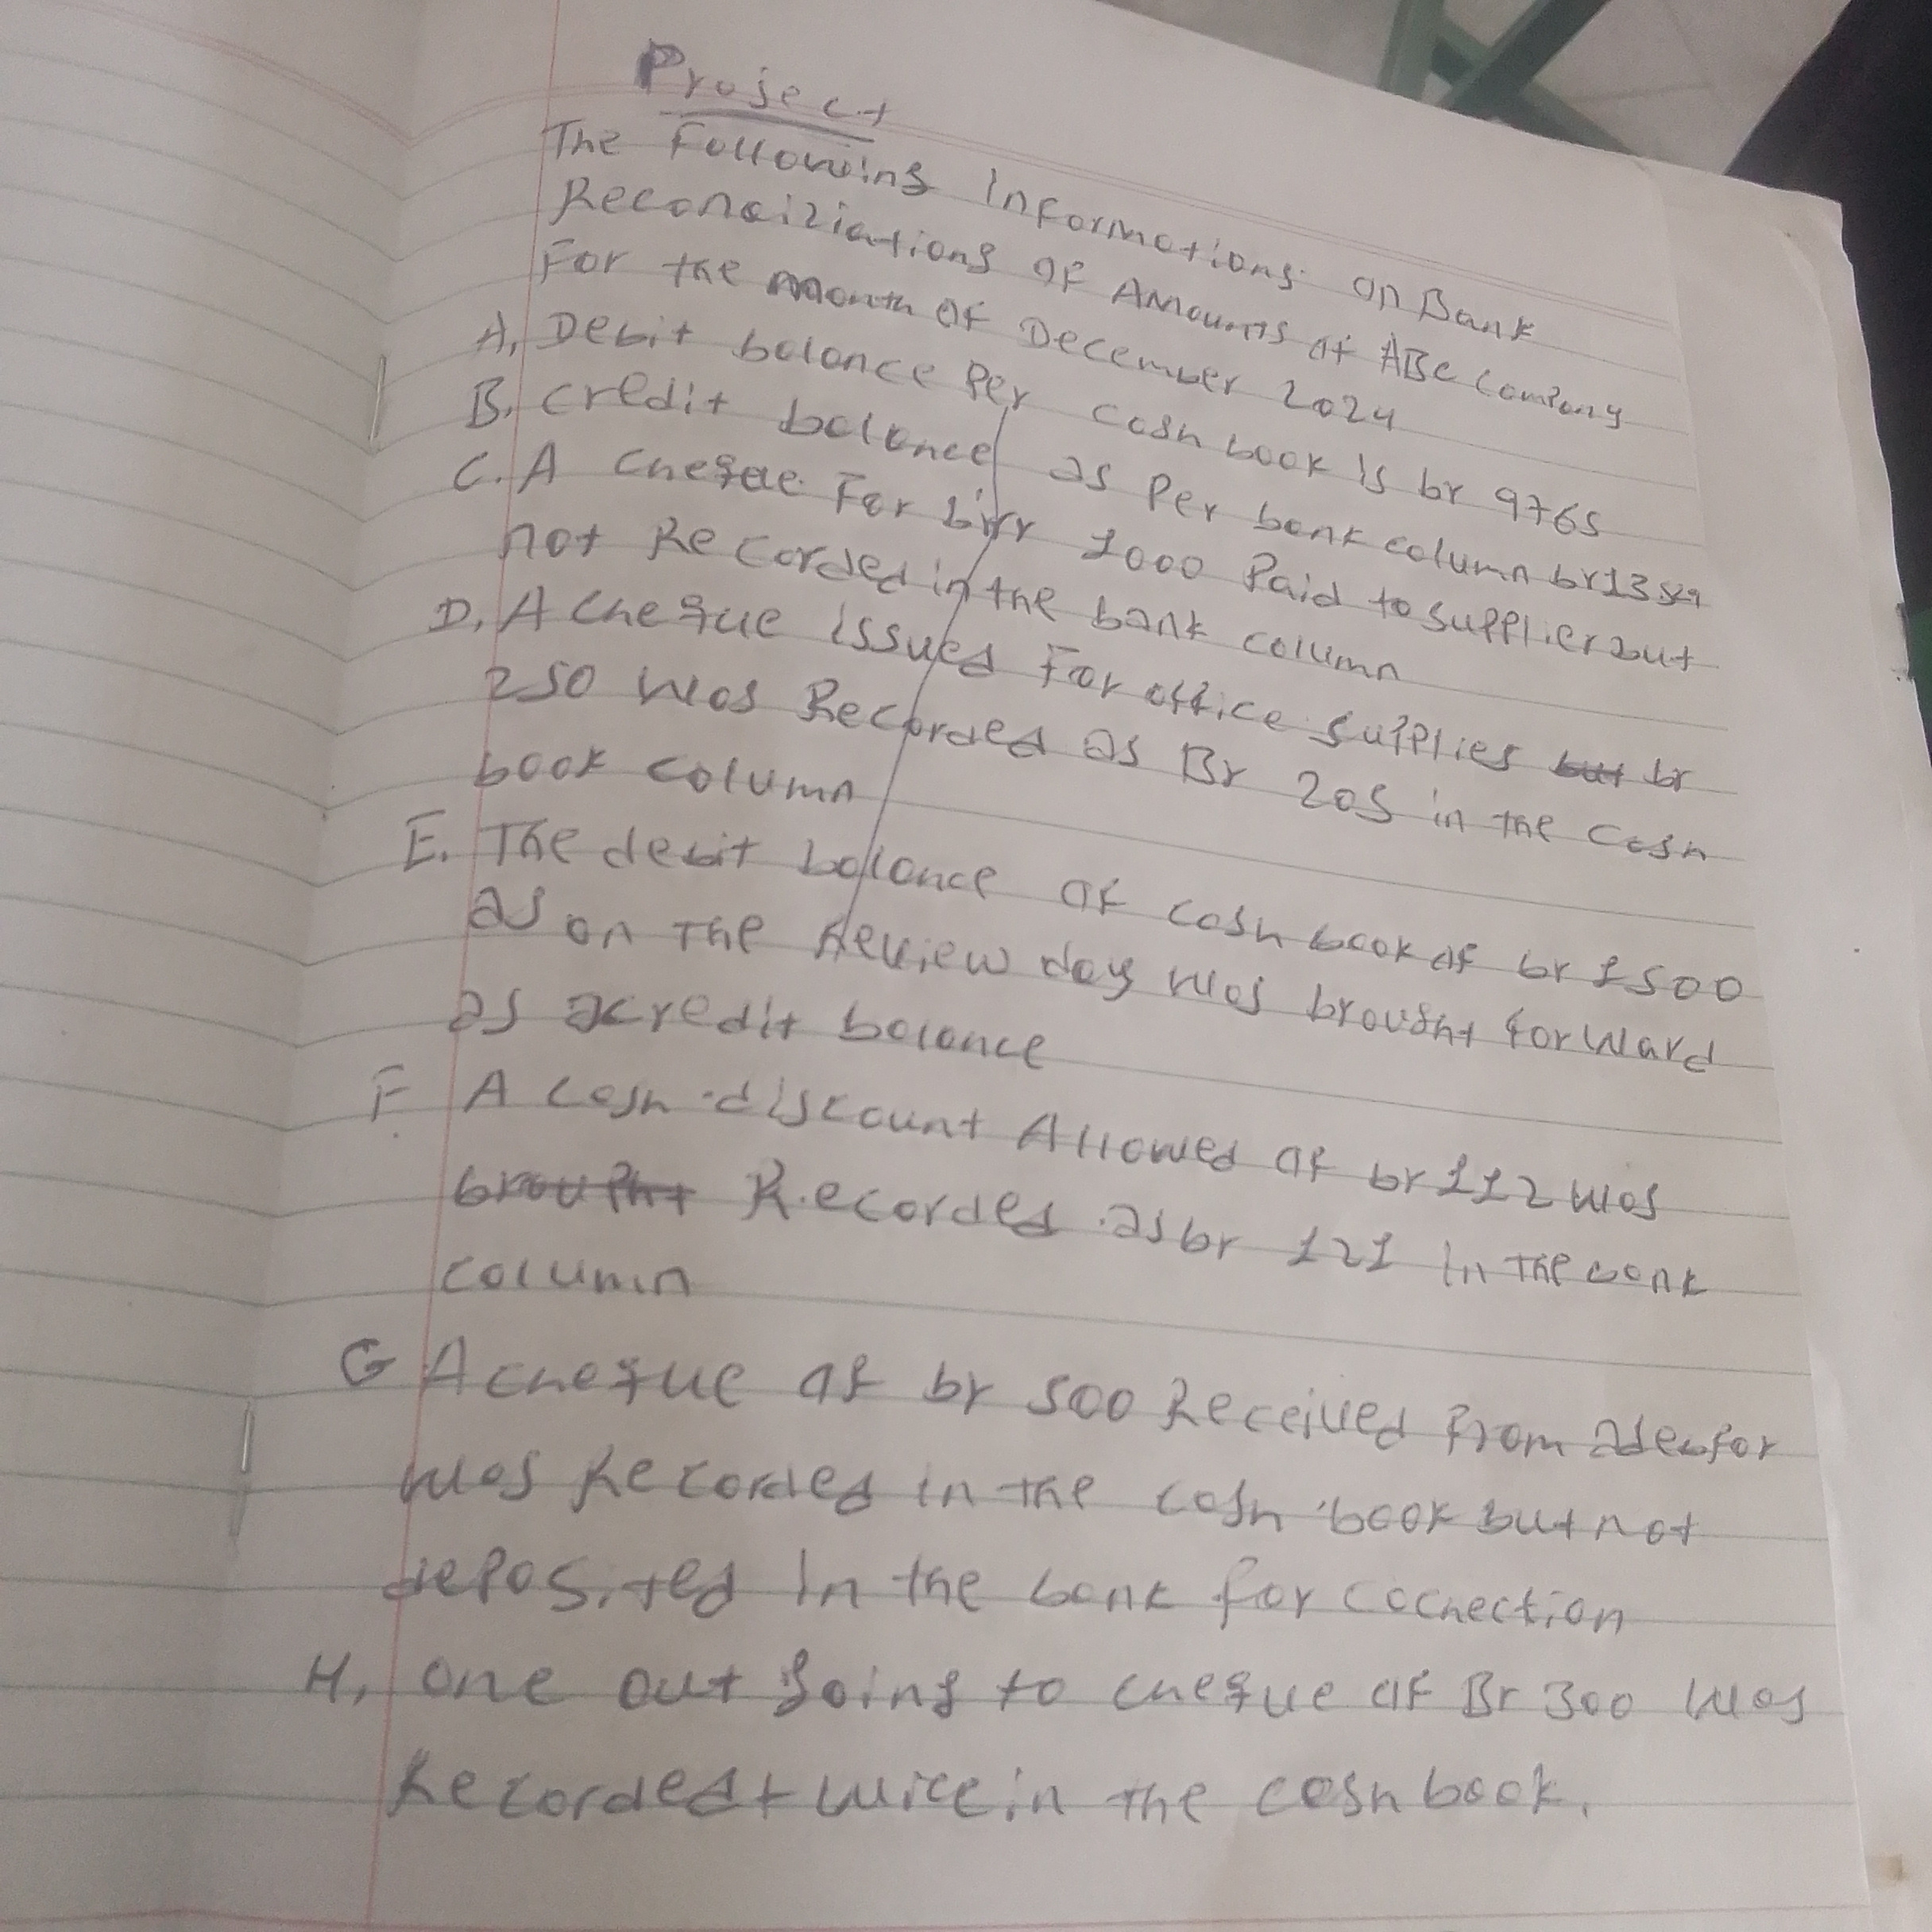 Project
The Following Informations on Bank
Reconciliations of Amounts of ABC Company
For the month of December 2024
A, Debit balance Per cash book is br 9765
B, credit balance as Per bank column
C. A Cheque For birr 1000 Paid to supplier but
not Recorded in the bank column
D, A Cheque issued For office supplies br
250 was Recorded as Br 205 in the cash
book column
E. The debit balance of cash book of br 1500
as on the Review day was brought forward
as a credit balance
F A cash discount Allowed of br 112 was
Recorded as br 121 in the bank
column
G A cheque of br 500 Received from
was Recorded in the cash book but not
deposited in the bank for
H, one out going to cheque of Br 300 was
Recorded twice in the cash book.